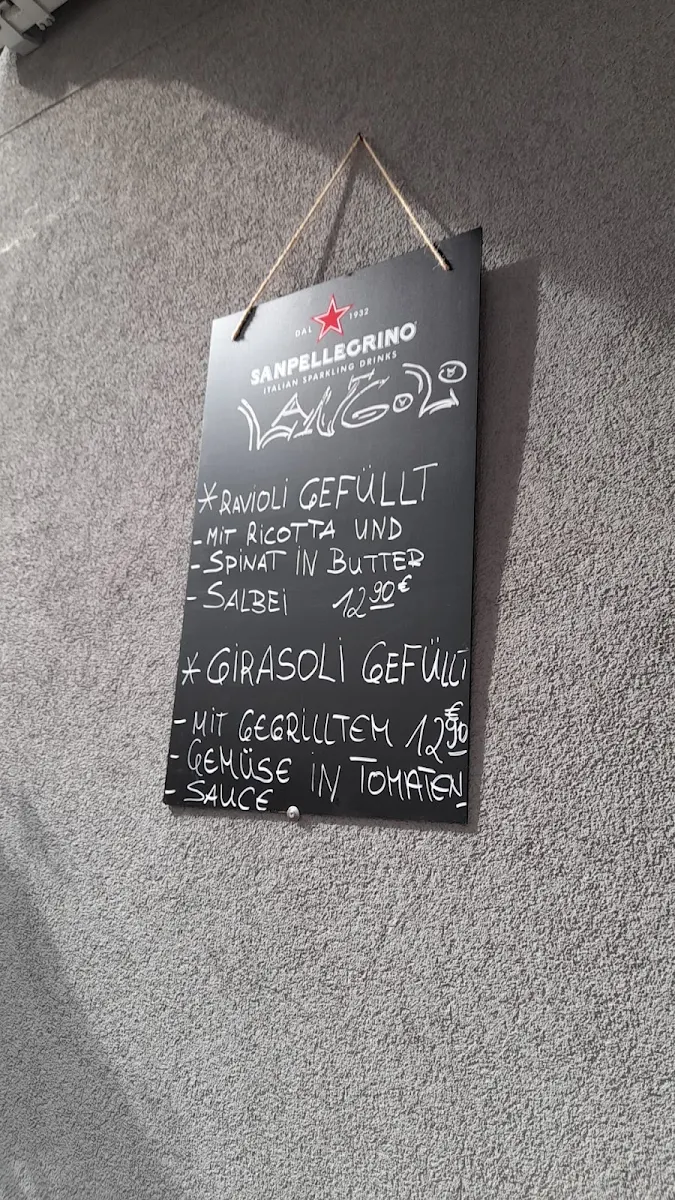 DAL 1932
SANPELLEGRINO
ITALIAN SPARKLING DRINKS
*RAVIOLI GEFÜLLT
-MIT RICOTTA UND
-SPINAT IN BUTTER
-SALBEI 12,90€
*GIRASOLI GEFÜLLT
-MIT GEGRILLTEM 12,90€
-GEMÜSE IN TOMATEN
-SAUCE